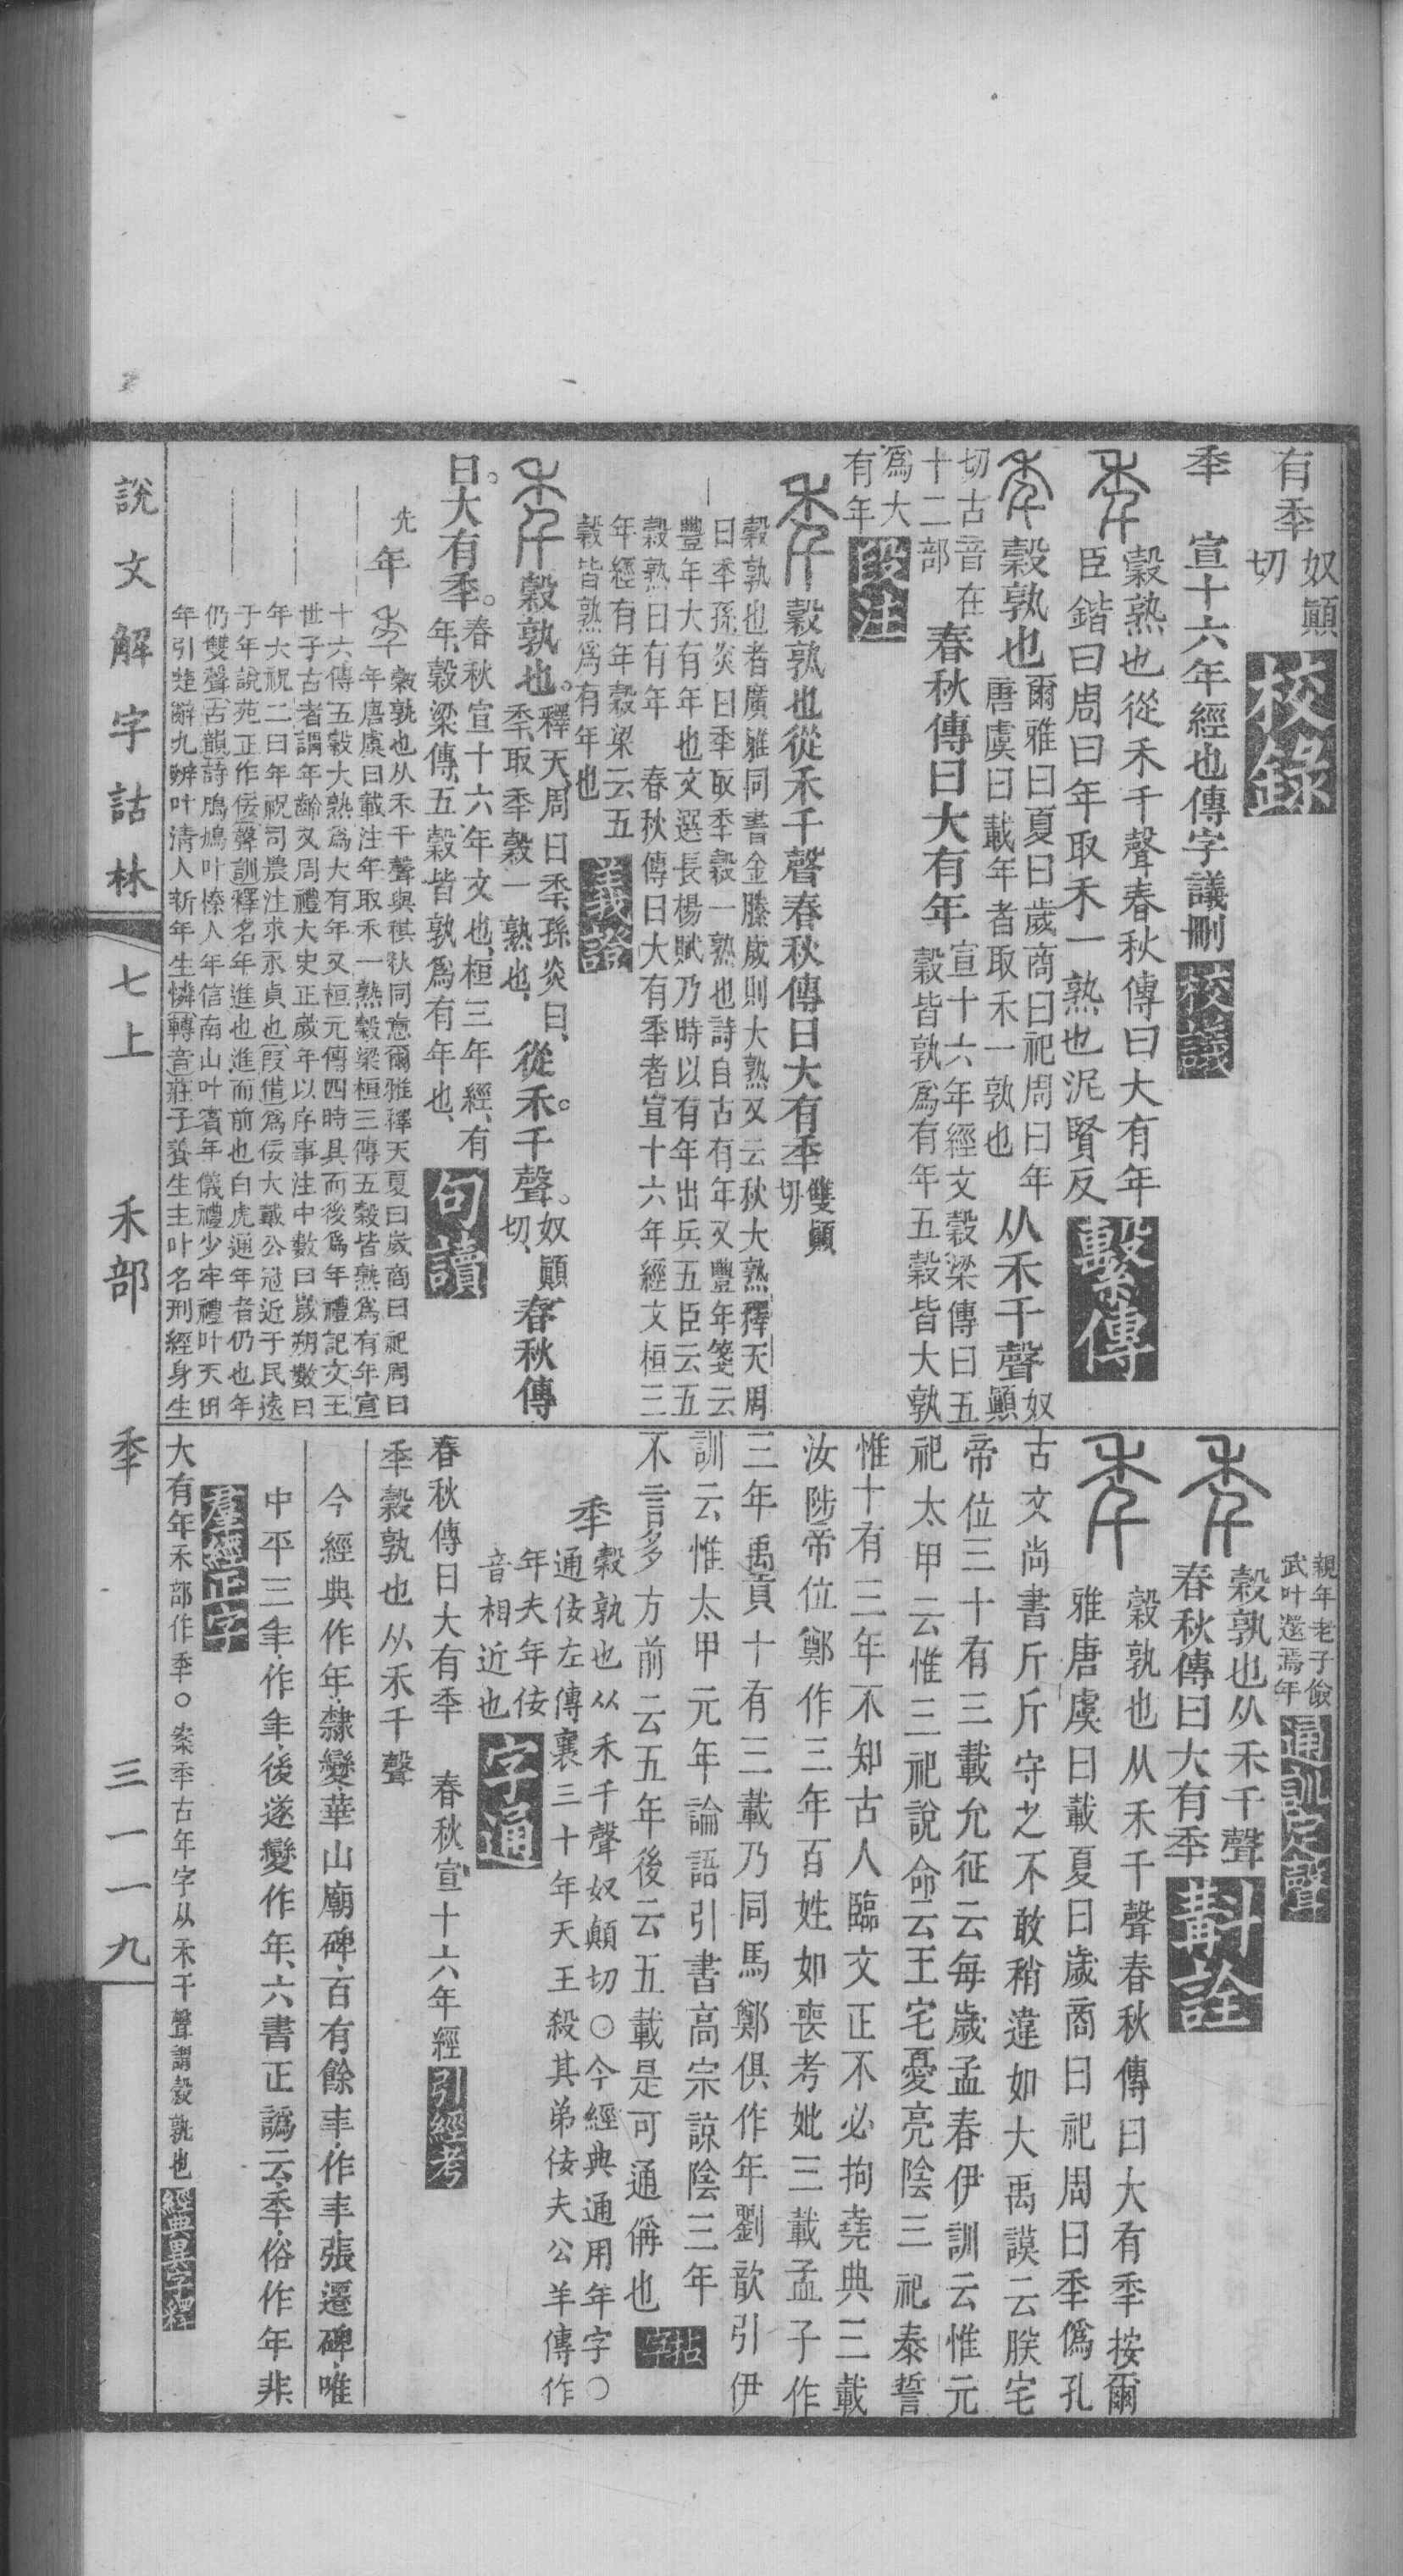 有秊
奴顚
切
校錄
秊　宣十六年經也傳字議刪
校議
穀熟也從禾千聲春秋傳曰大有年
臣鍇曰周曰年取禾一熟也泥賢反
繫傳
穀孰也
爾雅曰夏曰歲商曰祀周曰年
唐虞曰載年者取禾一孰也
从禾千聲
奴顚
切古音在
十二部
春秋傳曰大有年
宣十六年經文穀梁傳曰五
穀皆孰爲有年五穀皆大孰
爲大
有年
段注
穀孰也從禾千聲春秋傳曰大有秊
穀孰也者廣雅同書金縢歲則大熟又云秋大熟釋天周
曰秊孫炎曰秊取秊穀一熟也詩自古有年又豐年箋云
豐年大有年也文選長楊賦乃時以有年出兵五臣云五
穀熟曰有年　春秋傳曰大有秊者宣十六年經文桓三
年經有年穀梁云五
穀皆熟爲有年也
義證
穀孰也。
釋天、周曰秊、孫炎曰、
秊、取秊穀一熟也、
從禾。千聲。
奴顚
切、
春秋傳
曰。大有秊。
春秋宣十六年文也、桓三年經、有
年、穀梁傳、五穀皆孰爲有年也、
句讀
年
先
穀孰也从禾千聲與稘秋同意爾雅釋天夏曰歲商曰祀周曰
年唐虞曰載注年取禾一熟穀梁桓三傳五穀皆熟爲有年宣
十六傳五穀大熟爲大有年又桓元傳四時具而後爲年禮記文王
世子古者謂年齡又周禮大史正歲年以序事注中數曰歲朔數曰
年大祝二曰年祝司農注求永貞也假借爲佞大戴公冠近于民遠
于年說苑正作佞聲訓釋名年進也進而前也白虎通年者仍也年
仍雙聲古韻詩鳲鳩叶榛人年信南山叶賓年儀禮少牢禮叶天田
年引楚辭九辨叶淸人新年生憐轉音莊子養生主叶名刑經身生
親年老子儉
武叶還焉年
通訓定聲
穀孰也从禾千聲
春秋傳曰大有秊
斠詮
穀孰也从禾千聲春秋傳曰大有秊按爾
雅唐虞曰載夏曰歲商曰祀周曰秊僞孔
古文尚書斤斤守之不敢稍違如大禹謨云朕宅
帝位三十有三載允征云每歲孟春伊訓云惟元
祀太甲云惟三祀說命云王宅憂亮陰三祀泰誓
惟十有三年不知古人臨文正不必拘堯典三載
汝陟帝位鄭作三年百姓如喪考妣三載孟子作
三年禹貢十有三載乃同馬鄭俱作年劉歆引伊
訓云惟太甲元年論語引書高宗諒陰三年
不言多方前云五年後云五載是可通偁也
拈字
秊
穀孰也从禾千聲奴顛切〇今經典通用年字〇
通佞左傳襄三十年天王殺其弟佞夫公羊傳作
年夫年佞
音相近也
字通
春秋傳曰大有秊　春秋宣十六年經
引經考
秊穀孰也从禾千聲
今經典作年、隸變、華山廟碑、百有餘秊、作秊、張遷碑、唯
中平三年、作年、後遂變作年、六書正譌云、秊、俗作年非
羣經正字
大有年禾部作秊〇案秊古年字从禾千聲謂穀孰也
經典異字釋
說文解字詁林
七上
禾部
秊
三一一九